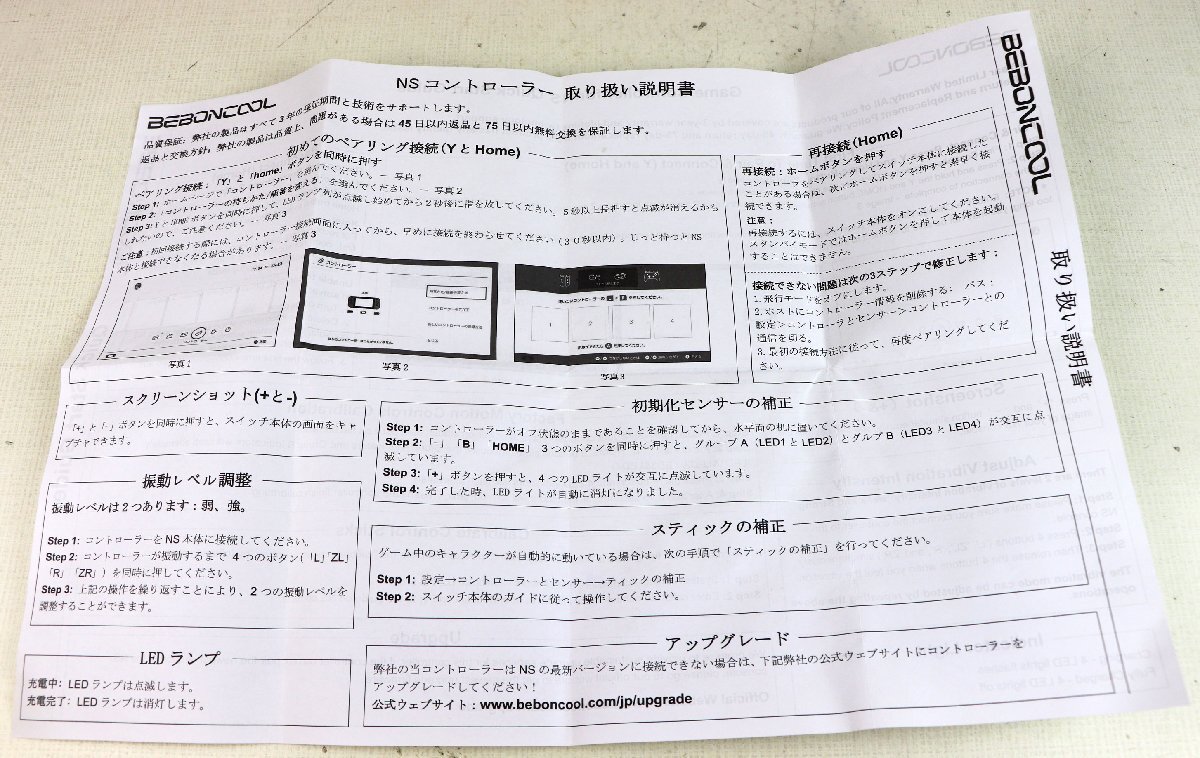 BEBONCOOL
NS コントローラー 取り扱い説明書
品質保証：弊社の製品はすべて3年の保証期間と技術をサポートします。
返品と交換方針：弊社の製品は品質上、問題がある場合は 45 日以内返品と 75 日以内無料交換を保証します。
初めてのペアリング接続(YとHome)
ペアリング接続：「Y」と「home」ボタンを同時に押す
Step 1: ホームから「コントローラー」を選んでください。― 写真 1
Step 2: 「コントローラーの持ちかた/順番を変える」を選んでください。― 写真 2
写真 3
写真 1
写真 2
写真 3
再接続(Home)
再接続：ホームボタンを押す
コントローラをペアリングしてスイッチ本体に接続した
ことがある場合は、次、ホームボタンを押すと素早く接
続できます。
注意：
再接続するには、スイッチ本体をオンにしてください。
スタンバイモードではホームボタンを押して本体を起動
することはできません。
接続できない問題は次の3ステップで修正します：
3. 最初の接続方法に従って、再度ペアリングしてくだ
さい。
スクリーンショット(+と-)
「+」と「-」ボタンを同時に押すと、スイッチ本体の画面をキャ
プチャできます。
振動レベル調整
振動レベルは2つあります：弱、強。
Step 1: コントローラーをNS本体に接続してください。
Step 2: コントローラーが振動するまで 4 つのボタン(「L」「ZL」
「R」「ZR」) を同時に押してください。
Step 3: 上記の操作を繰り返すことにより、2 つの振動レベルを
調整することができます。
LED ランプ
充電中： LEDランプは点滅します。
充電完了： LEDランプは消灯します。
初期化センサーの補正
Step 1: コントローラーがオフ状態のままであることを確認してから、水平面の机に置いてください。
Step 2: 「-」「B」 HOME」 3つのボタンを同時に押すと、グループ A（LED1 と LED2）とグルプ B（LED3 と LED4）が交互に点
滅しています。
Step 3: 「+」ボタンを押すと、4 つの LED ライトが交互に点滅しています。
Step 4: 完了した時、LEDライトが自動に消灯になりました。
スティックの補正
ゲーム中のキャラクターが自動的に動いている場合は、次の手順で「スティックの補正」を行ってください。
Step 1: 設定→コントローラーとセンサー→ティックの補正
Step 2: スイッチ本体のガイドに従って操作してください。
アップグレード
弊社の当コントローラーは NS の最新バージョンに接続できない場合は、下記弊社の公式ウェブサイトにコントローラーを
アップグレードしてください！
公式ウェブサイト：www.beboncool.com/jp/upgrade
BEBONCOOL
取り扱い説明書